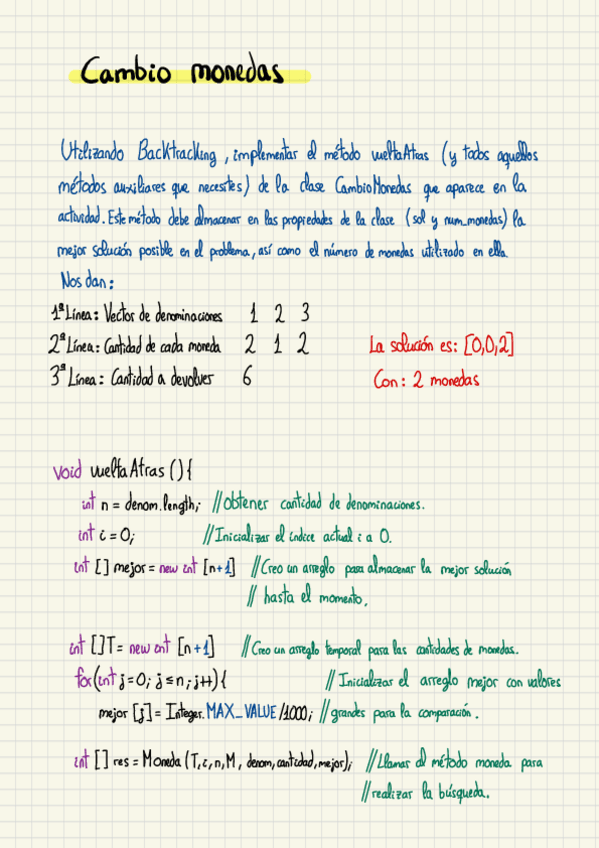 Cambio monedas
Utilizando Backtracking, implementar el método vueltaAtras (y todos aquellos
métodos auxiliares que necesites) de la clase CambioMonedas que aparece en la
actividad. Este método debe almacenar en las propiedades de la clase (sol y num_monedas) la
mejor solución posible en el problema, así como el número de monedas utilizado en ella.
Nos dan:
1ª Línea: Vector de denominaciones 1 2 3
2ª Línea: Cantidad de cada moneda 2 1 2 La solución es: [0,0,2]
3ª Línea: Cantidad a devolver 6 Con: 2 monedas
void vueltaAtras () {
int n = denom.length; //Obtener cantidad de denominaciones.
int i = 0; //Inicializar el índice actual i a 0.
int [] mejor = new int [n+1] //Creo un arreglo para almacenar la mejor solución
// hasta el momento.
int [] T = new int [n+1] //Creo un arreglo temporal para las cantidades de monedas.
for(int j=0; j≤n; j++) { // Inicializar el arreglo mejor con valores
mejor [j] = Integer.MAX_VALUE/1000; //grandes para la comparación.
int [] res = Moneda (T,i,n,M, denom,cantidad,mejor); //Llamar al método moneda para
//realizar la búsqueda.